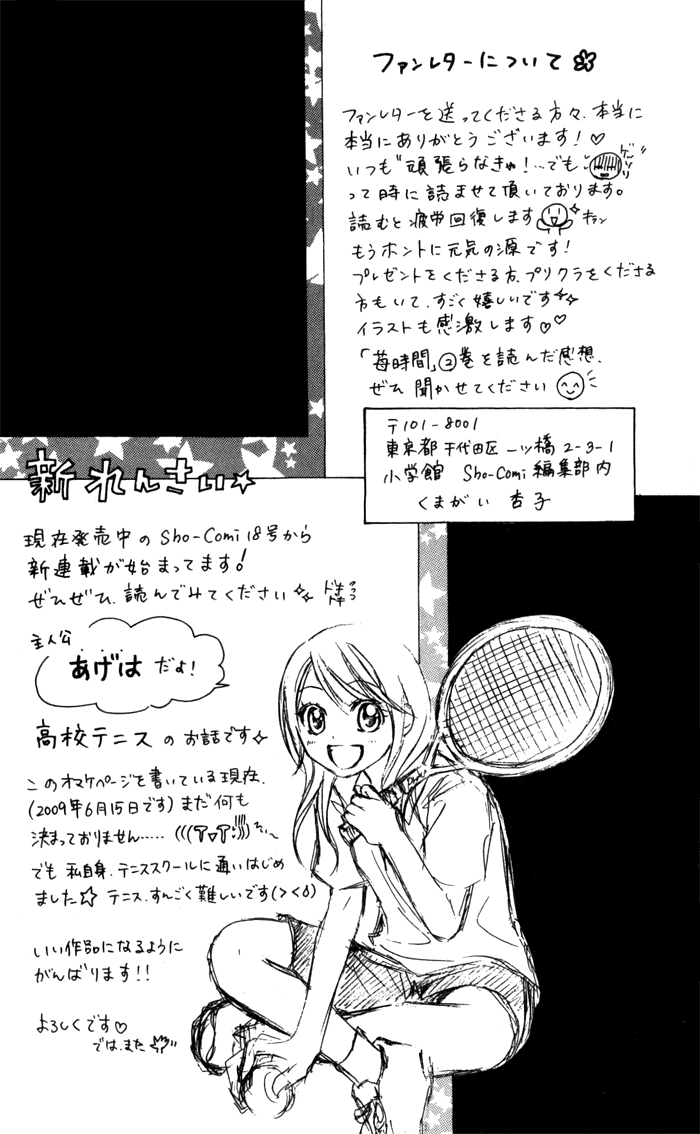 ファンレターについて
ファンレターを送ってくださる方々、本当に
本当にありがとうございます!♡
いつも"頑張らなきゃ!…でも
ゲンナリ
って時に読ませて頂いております。
読むと疲労回復します
もうホントに元気の源です!
プレゼントをくださる方、プリクラをくださる
方もいて、すごく嬉しいです
イラストも感激します♡♡
「苺時間」②巻を読んだ感想、
ぜひ 聞かせてください
〒101-8001
東京都千代田区一ッ橋2-3-1
小学館 Sho-Comi 編集部内
くまがい 杏子
新れんさい☆
現在発売中のSho-Comi 18号から
新連載が始まってます!
ぜひぜひ、読んでみてください
ドキドキ
主人公
あげは だよ!
高校テニス の お話です
このオマケページを書いている現在、
(2009年6月15日です) まだ何も
決まっておりません…‥
でも 私自身、テニススクールに通いはじめ
ました☆ テニス、すんごく難しいです(><。)
いい作品になるように
がんばります!!
よろしくです♡
では、また